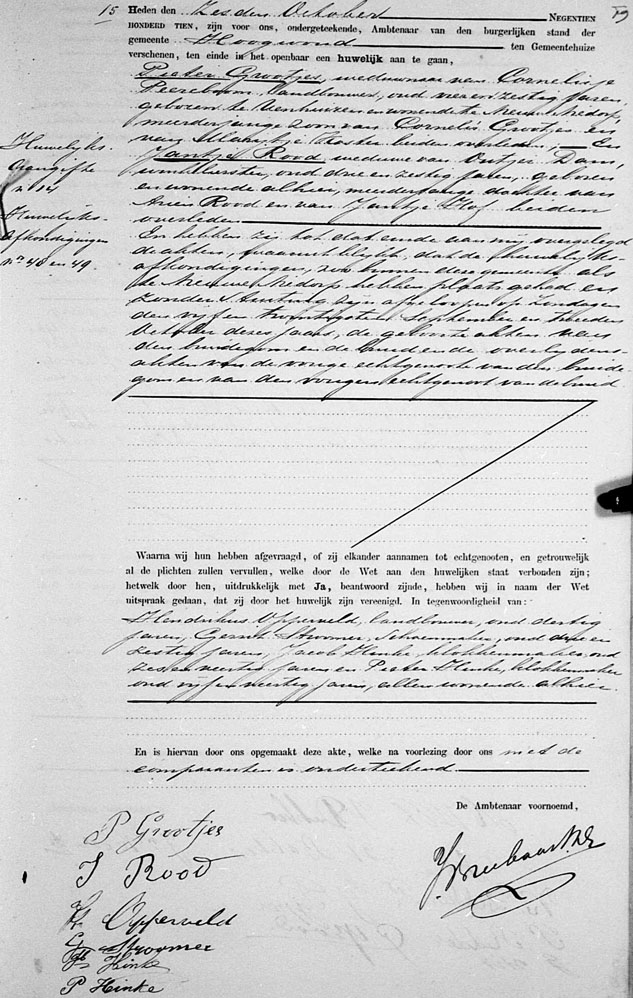 15 Heden den zesden October NEGENTIEN 19
HONDERD TIEN, zijn voor ons, ondergeteekende, Ambtenaar van den burgerlijken stand der
gemeente Hoogwoud ten Gemeentehuize
verschenen, ten einde in het openbaar een huwelijk aan te gaan,
Pieter Grootjes, weduwnaar van Cornelisje
Peereboom, landbouwer, oud vier en zestig jaren,
geboren te Venhuizen en wonende te Nieuwe Niedorp,
meerderjarige zoon van Cornelis Grootjes en
van Maartje Koster beiden overleden, En
Jantje Rood weduwe van Dam,
oud drie en zestig jaren, geboren
en wonende alhier, meerderjarige dochter van
Rood en van Jantje beiden
overleden
En hebben zij tot dat einde aan mij overgelegd
de akten, waaruit blijkt, dat de Huwelijks-
afkondigingen, zoo binnen deze gemeente als
te Nieuwe Niedorp hebben plaats gehad en
zonder stuiting zijn afgeloopen op Zondagen
den vijf en twintigsten September en tweeden
October dezes jaars, de geboorte akten van
den bruidegom en de bruid en de overlijdens-
akten van de vorige echtgenoote van den bruide-
gom en van den vorigen echtgenoot van de bruid
Huwelijks
aangifte
no 14
Huwelijks-
afkondigingen
nrs 48 en 49.
Waarna wij hun hebben afgevraagd, of zij elkander aannamen tot echtgenooten, en getrouwelijk
al de plichten zullen vervullen, welke door de Wet aan den huwelijken staat verbonden zijn;
hetwelk door hen, uitdrukkelijk met Ja, beantwoord zijnde, hebben wij in naam der Wet
uitspraak gedaan, dat zij door het huwelijk zijn vereenigd. In tegenwoordigheid van:
Hendrikus Opperveld, landbouwer, oud dertig
jaren, Gerrit Stroomer, schoenmaker, oud drie en
zestig jaren, Jacob Hinke, klokkenmaker, oud
zes en veertig jaren en Pieter Hinke, klokkenmaker
oud vijf en veertig jaren, allen wonende alhier.
En is hiervan door ons opgemaakt deze akte, welke na voorlezing door ons met de
comparanten is onderteekend.
De Ambtenaar voornoemd,
P Grootjes
J Rood
H Opperveld
G Stroomer
Jb Hinke
P Hinke